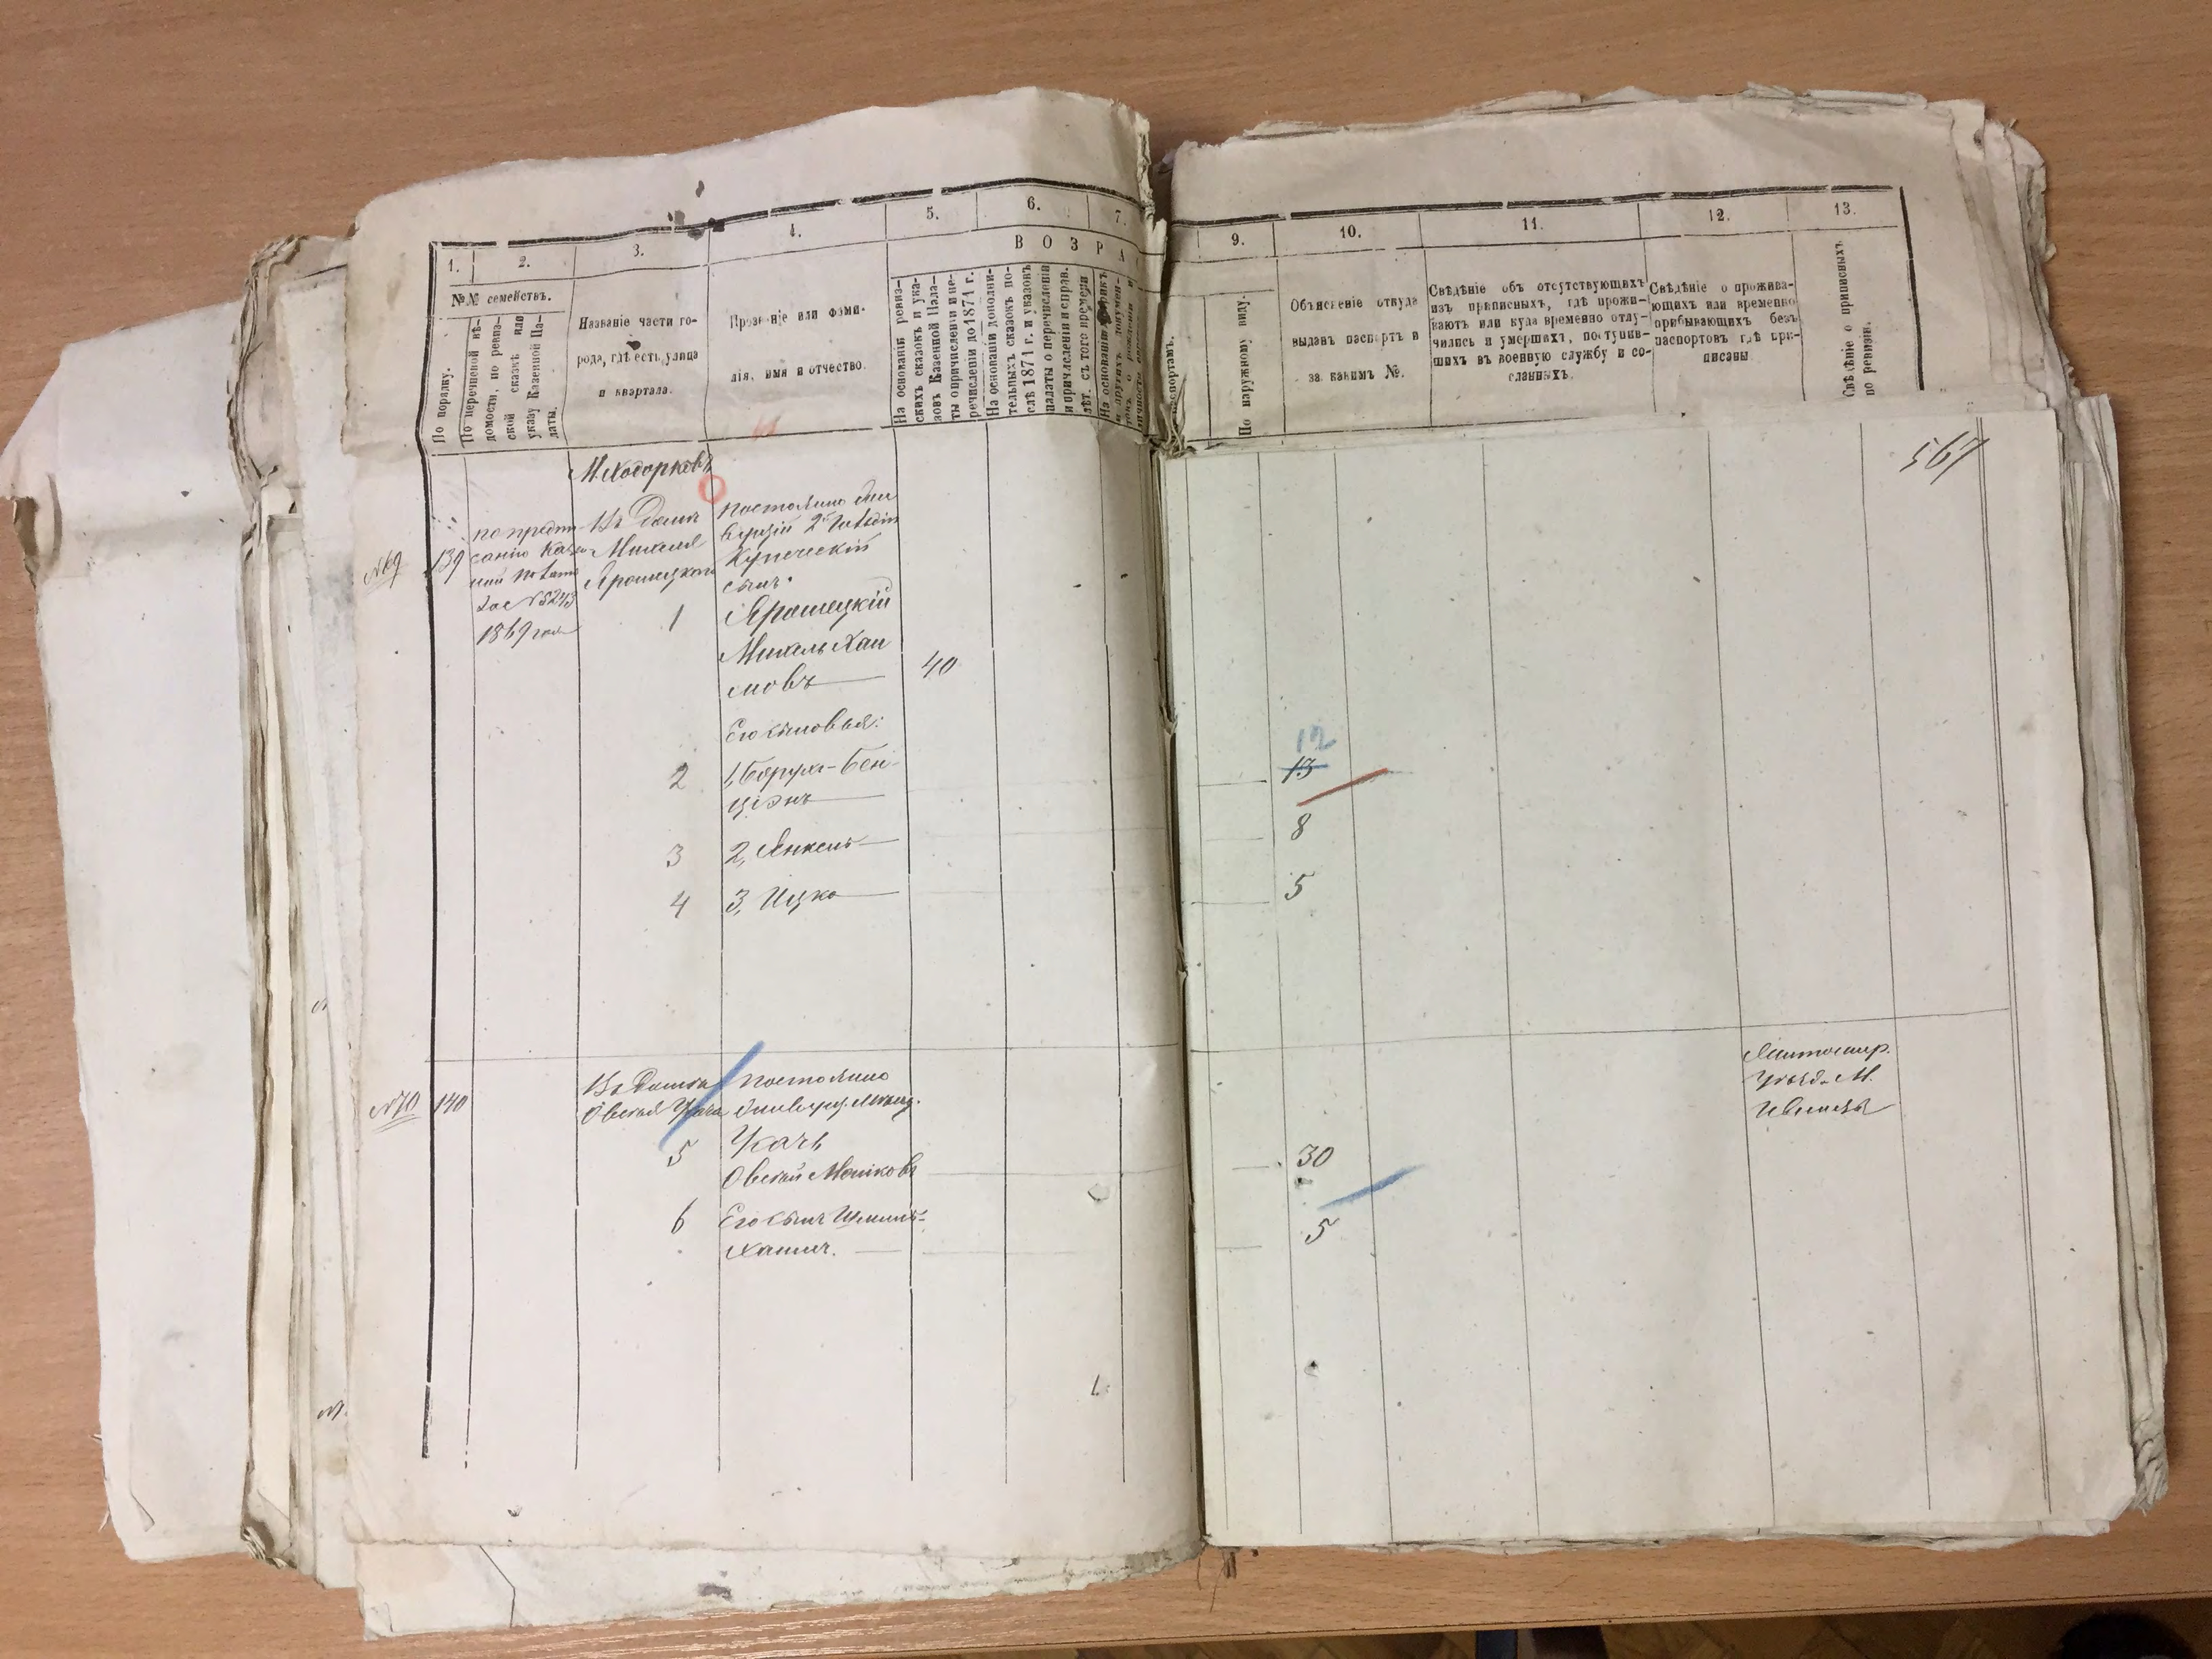 1.
2.
3.
4.
5.
6.
7.
9.
10.
11.
12.
13.
В О З Р А
№№ семействъ.
По порядку.
По перечневой вѣ-
домости, по ревиз-
ской сказкѣ или
указу Казенной Па-
латы.
Названіе части го-
рода, гдѣ есть, улица
и квартала.
Прозваніе или фами-
лія, имя и отчество.
На основаніи ревиз-
скихъ сказокъ и ука-
зовъ Казенной Пала-
ты о причисленіи и пе-
речисленіи до 1871 г.
На основаніи дополни-
тельныхъ сказокъ по-
слѣ 1871 г. и указовъ
палаты о перечисленіи
и причисленіи и справ.
лѣт. съ того времени
На основаніи метрикъ
и другихъ докумен-
товъ о рожденіи и
паспортамъ.
По наружному виду.
Объясненіе откуда
выданъ паспортъ и
за какимъ №.
Свѣдѣніе объ отсутствующихъ
изъ приписныхъ, гдѣ прожи-
ваютъ или куда временно отлу-
чились и умершихъ, поступив-
шихъ въ военную службу и со-
сланныхъ.
Свѣдѣніе о прожива-
ющихъ или временно
прибывающихъ безъ
паспортовъ гдѣ при-
писаны
Свѣдѣніе о приписныхъ
по ревизіи.
567
М. Ходорковъ
№69
139
по предпи
санію Казен
ной Палаты
за № 5243
1869 года
Въ домѣ
Михеля
Ярошецкаго
постоянно
2й гильдіи
Купеческій
сынъ.
1
Ярошецкій
Михель Хаи
мовъ
40
Его сыновья:
2
1, Борухъ-Бен-
ціонъ
12
13
3
2, Янкель
8
4
3, Ицко
5
№70
140
Въ домѣ
Овсея Ткача
постоянно
5
Ткачъ
Овсей Мошковъ
30
6
Его сынъ Шмиль-
Хаимъ.
5
Житомир.
уѣзд. М.
Ивницы